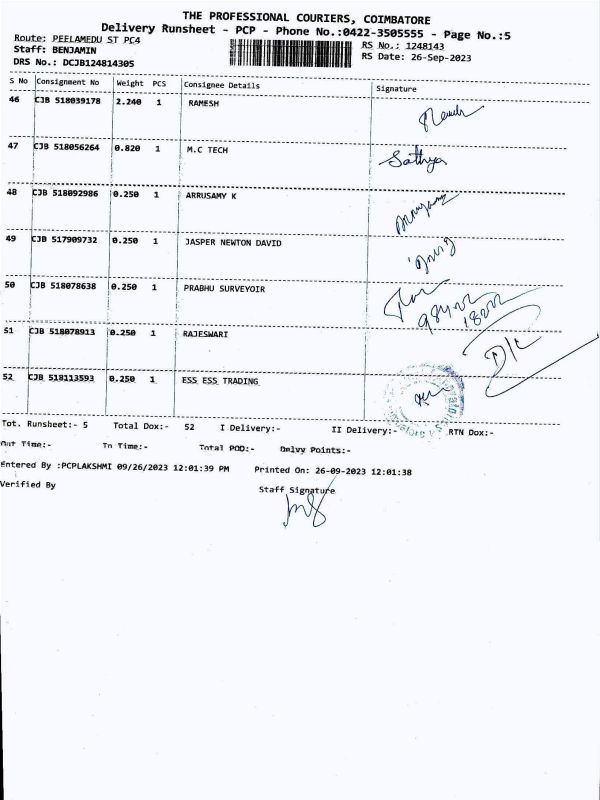 THE PROFESSIONAL COURIERS, COIMBATORE
Delivery Runsheet - PCP - Phone No.:0422-3505555 - Page No.:5
Route: PEELAMEDU ST PC4
RS No.: 1248143
Staff: BENJAMIN
RS Date: 26-Sep-2023
DRS No.: DCJB124814305
S No Consignment No Weight PCS Consignee Details Signature
46 CJB 518039178 2.240 1 RAMESH
47 CJB 518056264 0.820 1 M.C TECH Sathya
48 CJB 518092986 0.250 1 ARRUSAMY K
49 CJB 517909732 0.250 1 JASPER NEWTON DAVID
50 CJB 518078638 0.250 1 PRABHU SURVEYOIR
51 CJB 518078913 0.250 1 RAJESWARI D/L
52 CJB 518113593 0.250 1 ESS ESS TRADING
Tot. Runsheet:- 5 Total Dox:- 52 I Delivery:- II Delivery:- RTN Dox:-
Out Time:- In Time:- Total POD:- Dnlvy Points:-
Entered By :PCPLAKSHMI 09/26/2023 12:01:39 PM Printed On: 26-09-2023 12:01:38
Verified By Staff Signature